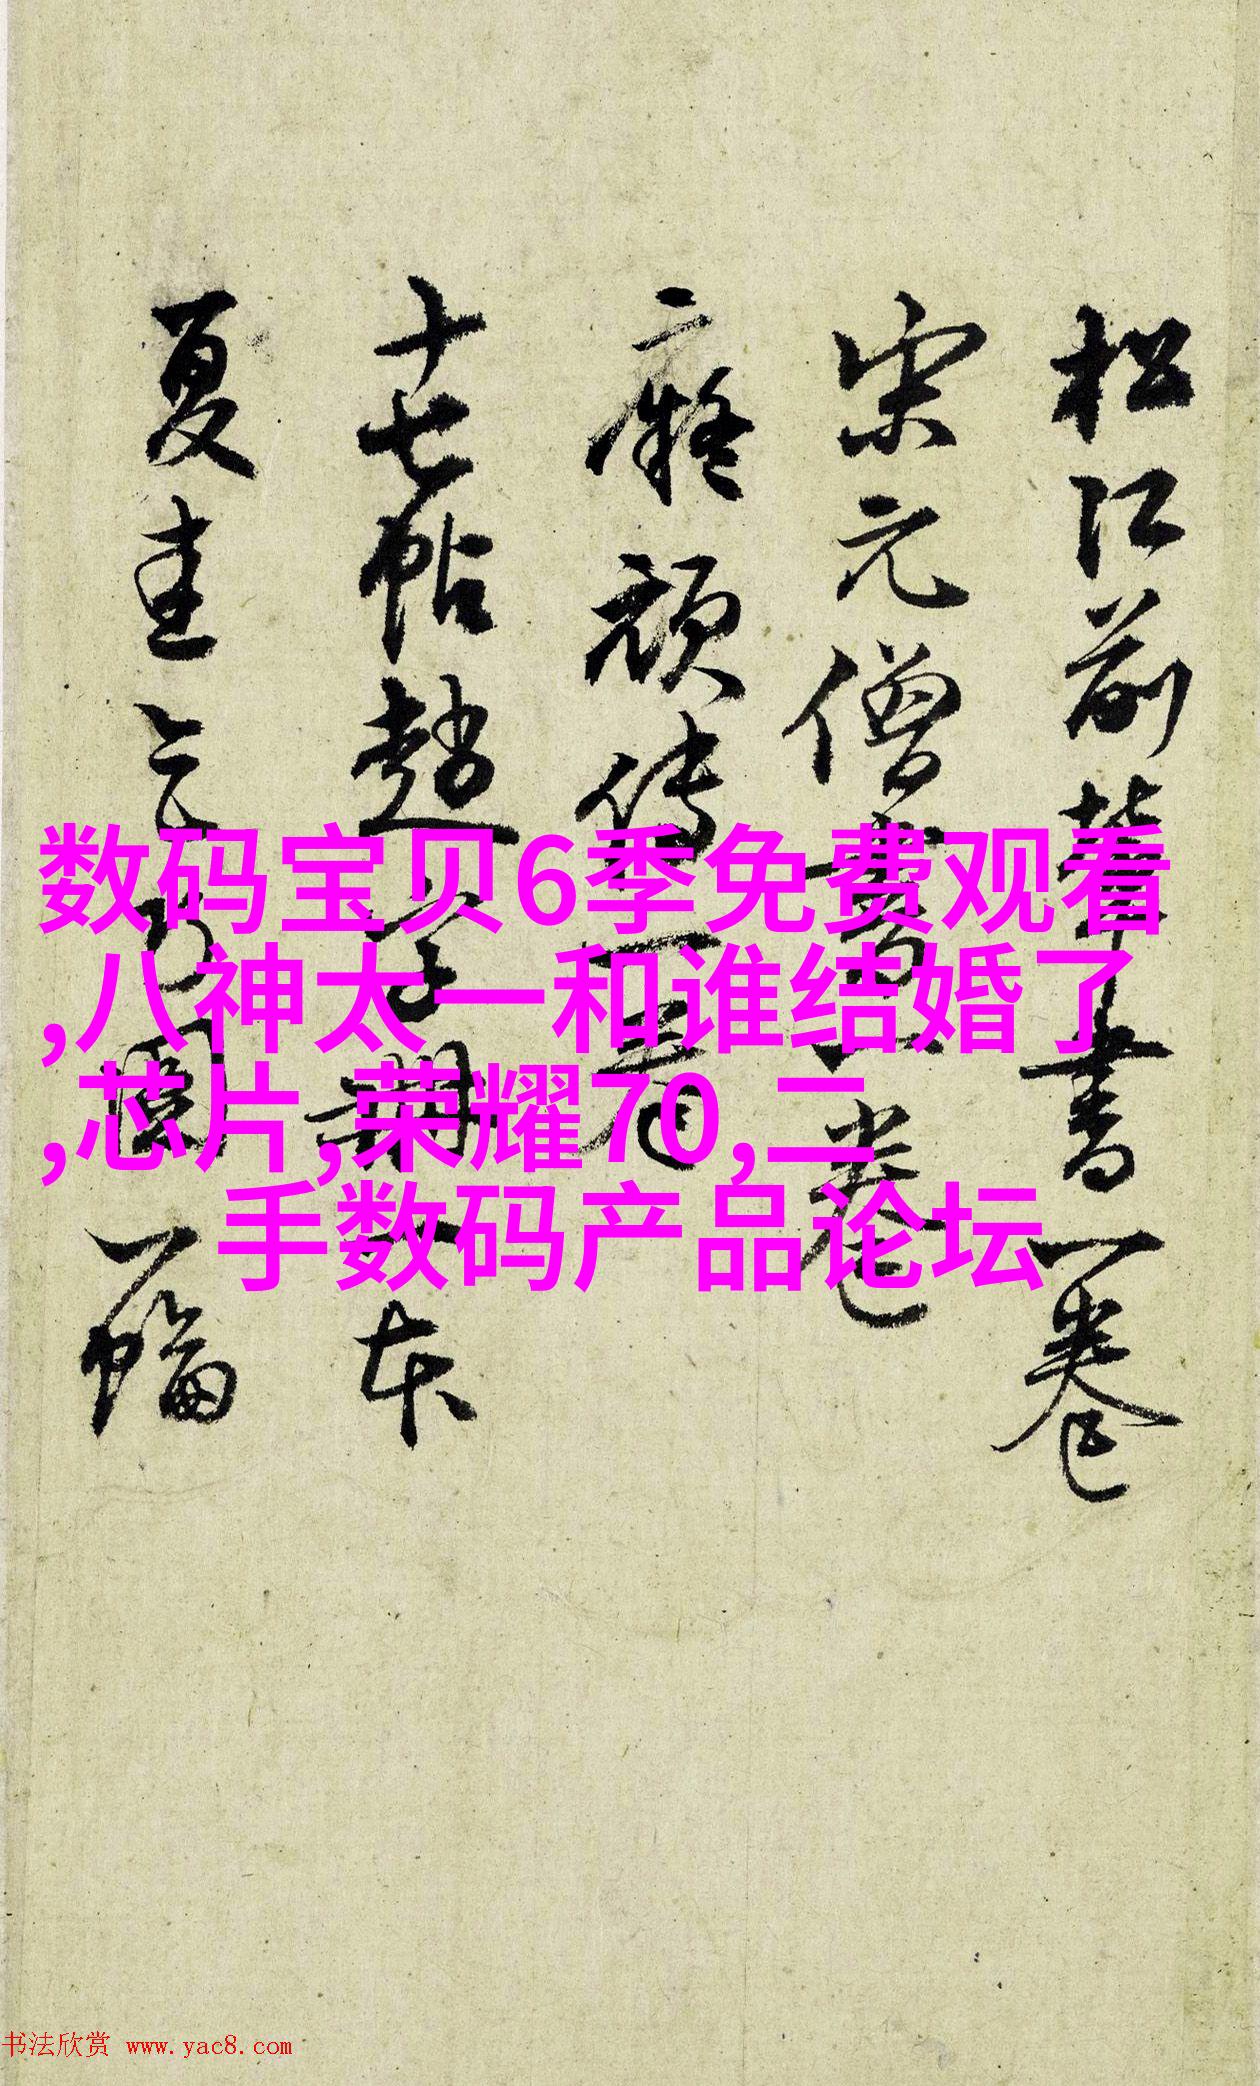 松江前辈书一卷
宋元僧书一卷
二癡顽传一卷
十七帖赵
本
夏圭
一幅
数码宝贝6季免费观看
,八神太一和谁结婚了
,芯片,荣耀70,二
手数码产品论坛
书法欣赏 www.yac8.com